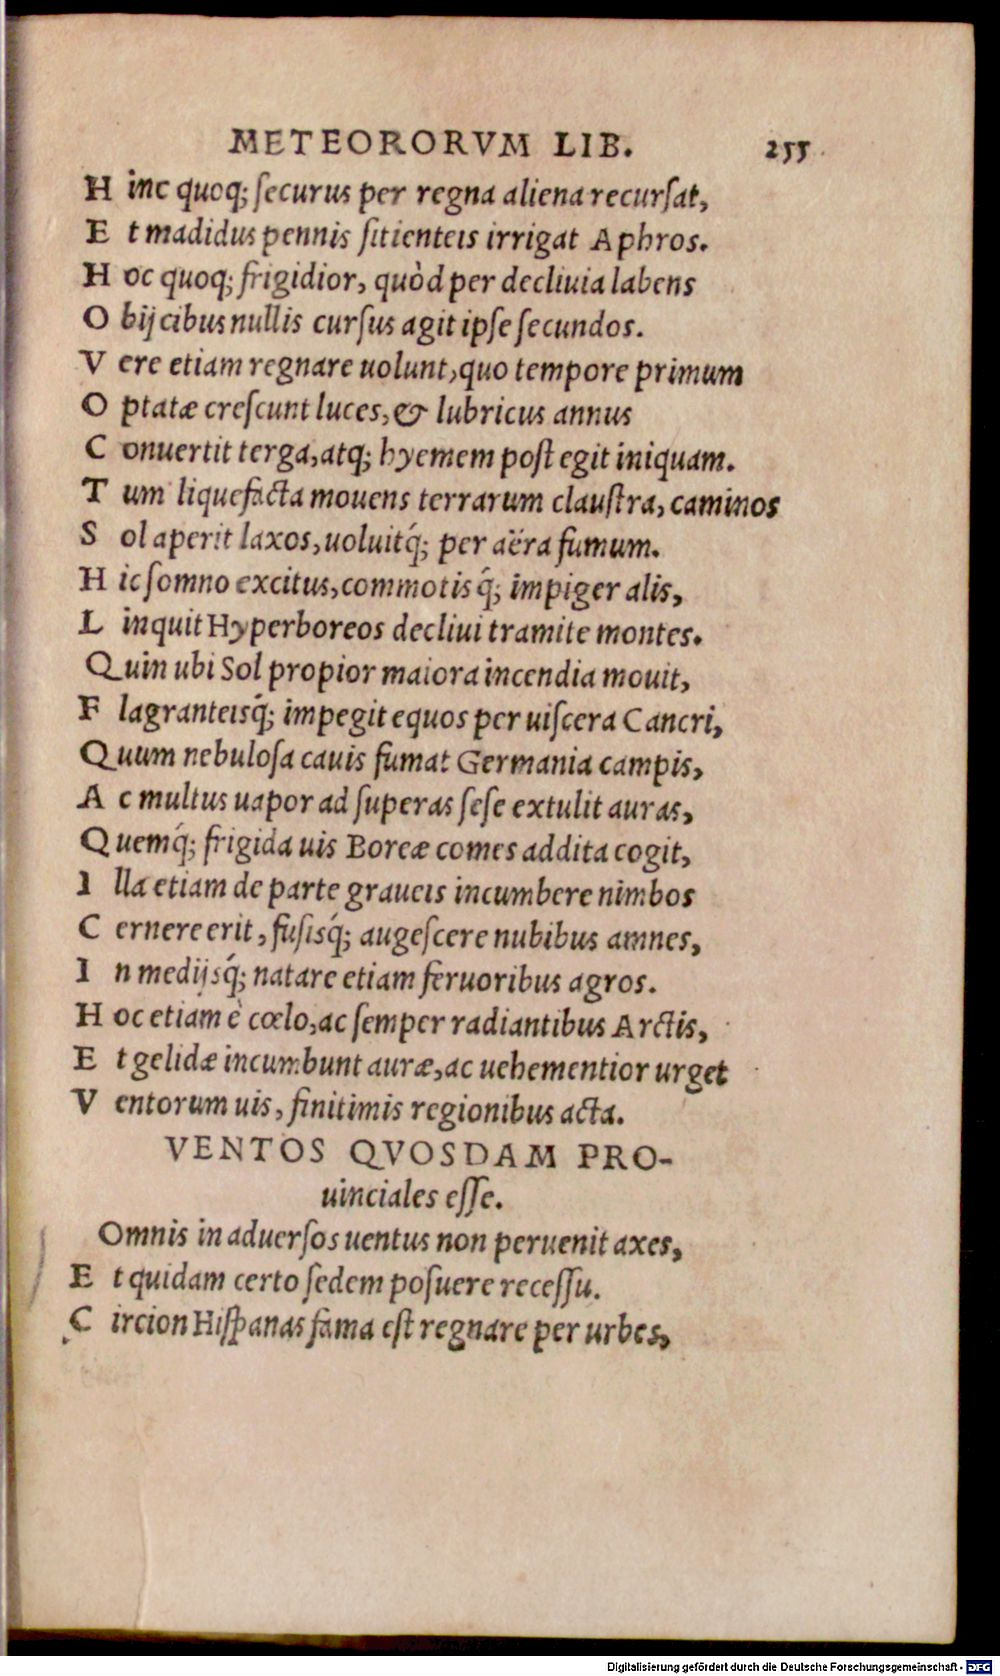 METEORORVM LIB. 255
H inc quoq; ſecurus per regna aliena recurſat,
E t madidus pennis ſitienteis irrigat Aphros.
H oc quoq; frigidior, quòd per decliuia labens
O bijcibus nullis curſus agit ipſe ſecundos.
V ere etiam regnare uolunt, quo tempore primum
O ptatæ creſcunt luces, & lubricus annus
C onuertit terga, atq; hyemem poſt egit iniquam.
T um liquefacta mouens terrarum clauſtra, caminos
S ol aperit laxos, uoluitq́; per aëra fumum.
H ic ſomno excitus, commotisq́; impiger alis,
L inquit Hyperboreos decliui tramite montes.
Quin ubi Sol propior maiora incendia mouit,
F lagranteisq́; impegit equos per uiſcera Cancri,
Quum nebuloſa cauis fumat Germania campis,
A c multus uapor ad ſuperas ſeſe extulit auras,
Quemq́; frigida uis Boreæ comes addita cogit,
I lla etiam de parte graueis incumbere nimbos
C ernere erit, fuſisq́; augeſcere nubibus amnes,
I n medijsq́; natare etiam feruoribus agros.
H oc etiam è cœlo, ac ſemper radiantibus Arctis,
E t gelidæ incumbunt auræ, ac uehementior urget
V entorum uis, finitimis regionibus acta.
VENTOS QVOSDAM PRO-
uinciales eſſe.
Omnis in aduerſos uentus non peruenit axes,
E t quidam certo ſedem poſuere receſſu.
C ircion Hiſpanas fama eſt regnare per urbes,
Digitalisierung gefördert durch die Deutsche Forschungsgemeinschaft - DFG